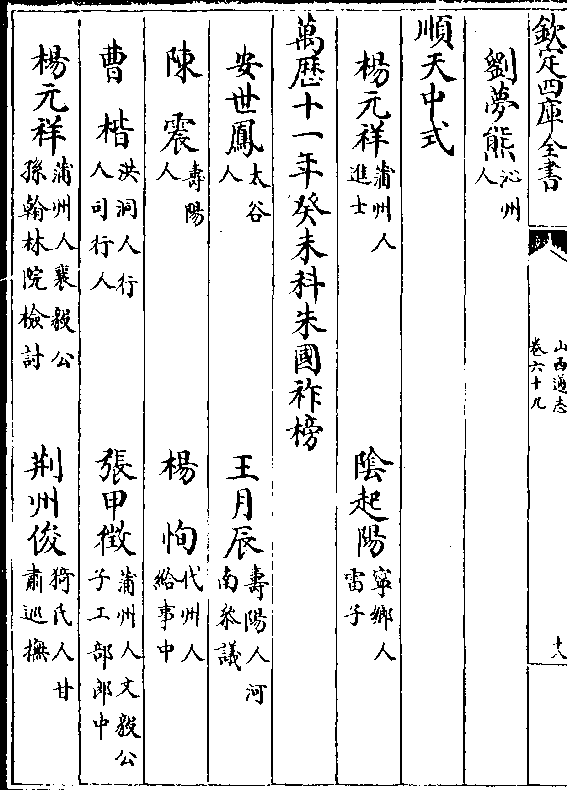 欽定四庫全書
山西通志
卷六十九
十八
劉夢熊 沁州人
順天中式
楊元祥 蒲州人進士
陰起陽 寧鄉人雷子
萬歷十一年癸未科朱國祚榜
安世鳳 太谷人
王月辰 壽陽人河南叅議
陳震 壽陽人
楊恂 代州人給事中
曹楷 洪洞人行人司行人
張甲徵 蒲州人文毅公子工部郎中
楊元祥 蒲州人襄毅公孫翰林院檢討
荆州俊 猗氏人甘肅巡撫